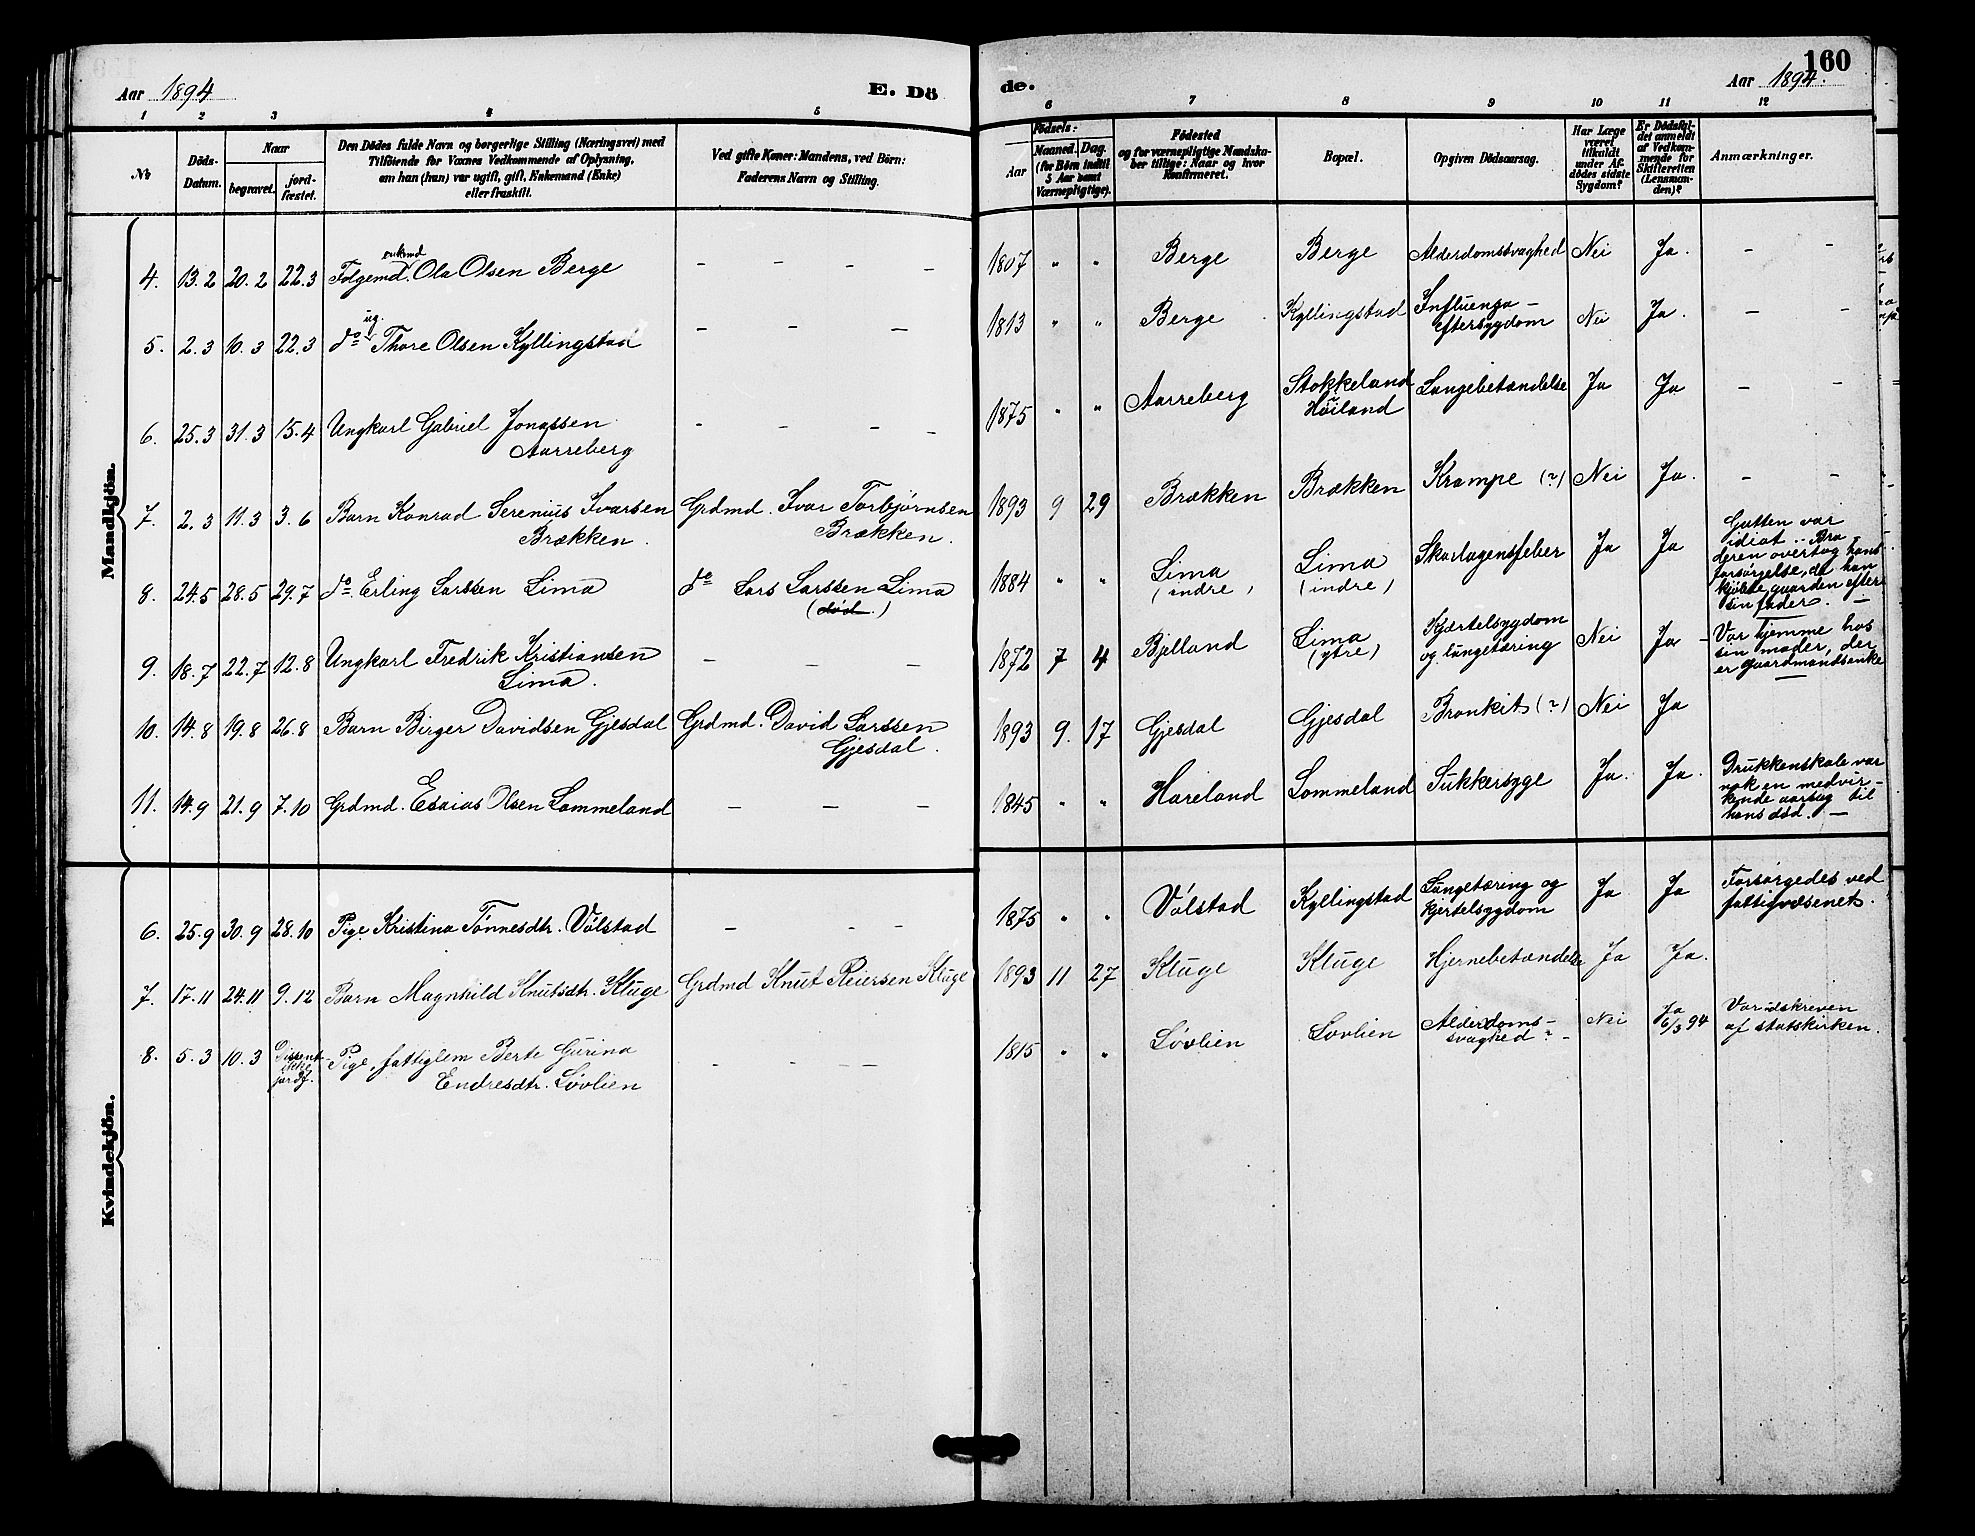 160
Aar 1894
E. Dö
de.
Aar 1894.
1 2 3 4 5 6 7 8 9 10 11 12
№
Döds-
Datum.
Naar
begravet.
jord-
fæstet.
Den Dödes fulde Navn og borgerlige Stilling (Næringsvei) med
Tilföiende for Voxnes Vedkommende af Oplysning,
om han (hun) var ugift, gift, Enkemand (Enke)
eller fraskilt.
Ved gifte Koner: Mandens, ved Börn:
Faderens Navn og Stilling.
Födsels:
Aar
Maaned. Dag.
(for Börn indtil
5 Aar samt
Værnepligtige).
Födested
og for værnepligtige Mandska-
ber tillige: Naar og hvor
Konfirmeret.
Bopæl.
Opgiven Dödsaarsag.
Har Læge
været
tilkaldt
under Af-
dödes sidste
Sygdom?
Er Dödsfal-
det anmeldt
af Vedkom-
mende for
Skifteretten
(Lensman-
den)?
Anmærkninger.
Mandkjön.
enkemd
4. 13.2 20.2 22.3 Folgemd. Ola Olsen Berge – – – – 1807 " " Berge Berge Alderdomssvaghed Nei Ja. – –
ug.
5. 2.3 10.3 22.3 do Thore Olsen Kyllingstad – – – 1813 " " Berge Kyllingstad Influenza – Nei Ja. – –
eftersygdom
6. 25.3 31.3 15.4 Ungkarl Gabriel Jonassen – – – – 1875 " " Aarreberg Stokkeland Lungebetændelse Ja Ja – –
Aarreberg
Høiland
7. 2.3 11.3 3.6 Barn Konrad Serenius Ivarsen Grdmd. Ivar Torbjørnsen 1893 9 29 Brækken Brækken Krampe (?) Nei Ja. – –
Brækken.
Brækken.
8. 24.5 28.5 29.7 do Erling Larssen Lima do Lars Larssen Lima 1884 " " Lima Lima Skarlagensfeber Ja Ja
(død.)
(indre)
(indre)
Gutten var
idiot.. Bro
deren overtog hans
forsørgelse, da han
kjøbte gaarden efter
sin fader. –
9. 18.7 22.7 12.8 Ungkarl Fredrik Kristiansen – – – 1872 7 4 Bjelland Lima Kjærtelsygdom Nei Ja –
Lima.
(ytre)
og lungetæring
Var hjemme hos
sin moder, der
er gaardmandsenke
10. 14.8 19.8 26.8 Barn Birger Davidsen Gjesdal Grdmd. David Larssen 1893 9. 17 Gjesdal Gjesdal Bronkit (?) Nei Ja
Gjesdal.
11. 14.9 21.9 7.10 Grdmd. Esaias Olsen Lommeland – – – 1845 " " Hareland Lommeland Sukkersyge Ja. Ja.
Drukkenskab var
nok en medvir-
kende aarsag til
hans død. –
Kvindekjön.
6. 25.9 30.9 28.10 Pige Kristina Tønnesdtr. Vølstad – – – 1875 " " Vølstad Kyllingstad Lungetæring og Ja Ja Forsørgedes ved
kjertelsygdom
fattigvæsenet.
7. 17.11 24.11 9.12 Barn Magnhild Knutsdtr. Kluge Grdmd Knut Reiersen Kluge 1893 11 27 Kluge Kluge Hjernebetændelse Ja Ja.
8. 5.3 10.3 Dissent. Pige, fattiglem Berte Gurina – – – – 1815 " " Løvlien Løvlien Alderdoms- Nei Ja Var udskreven
ikke
jordf.
Endresdtr. Løvlien
svaghed? –
6/3 94
af statskirken.